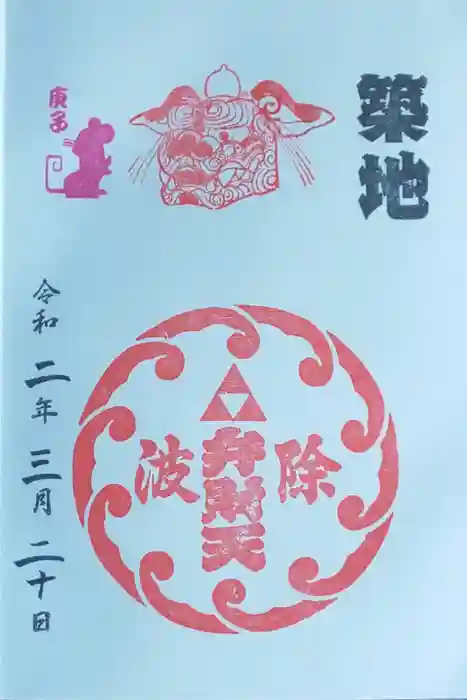 築地
除波
弁財天
庚子
令和二年三月二十日